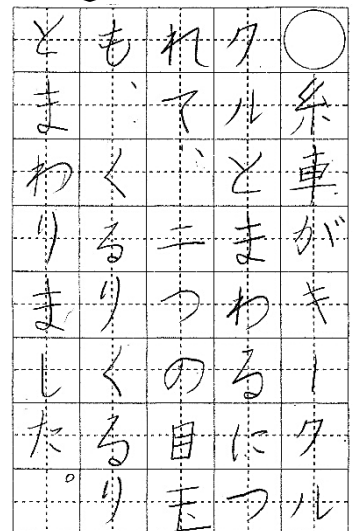 ○糸車がキータル
タルとまわるにつ
れて、二つの目玉
も、くるりくるり
とまわりました。